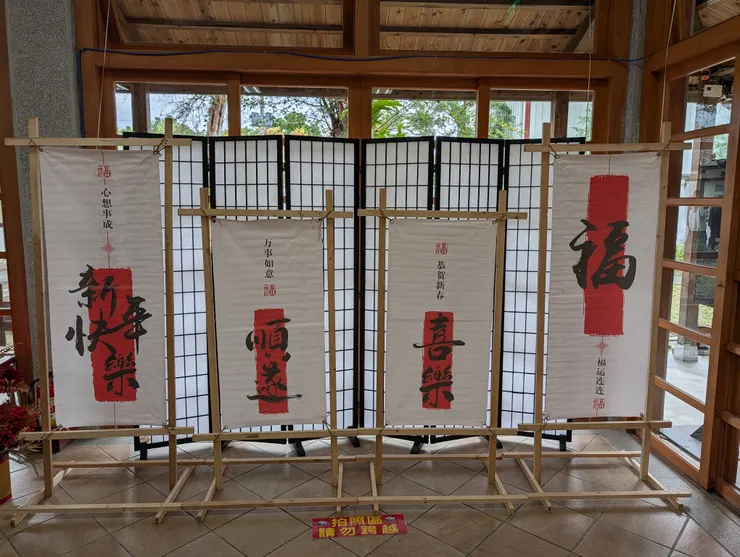 福
心想事成
新年快樂
万事如意
福
順遂
福
恭贺新春
喜樂
福
福运连连
福
拍照區
請勿跨越